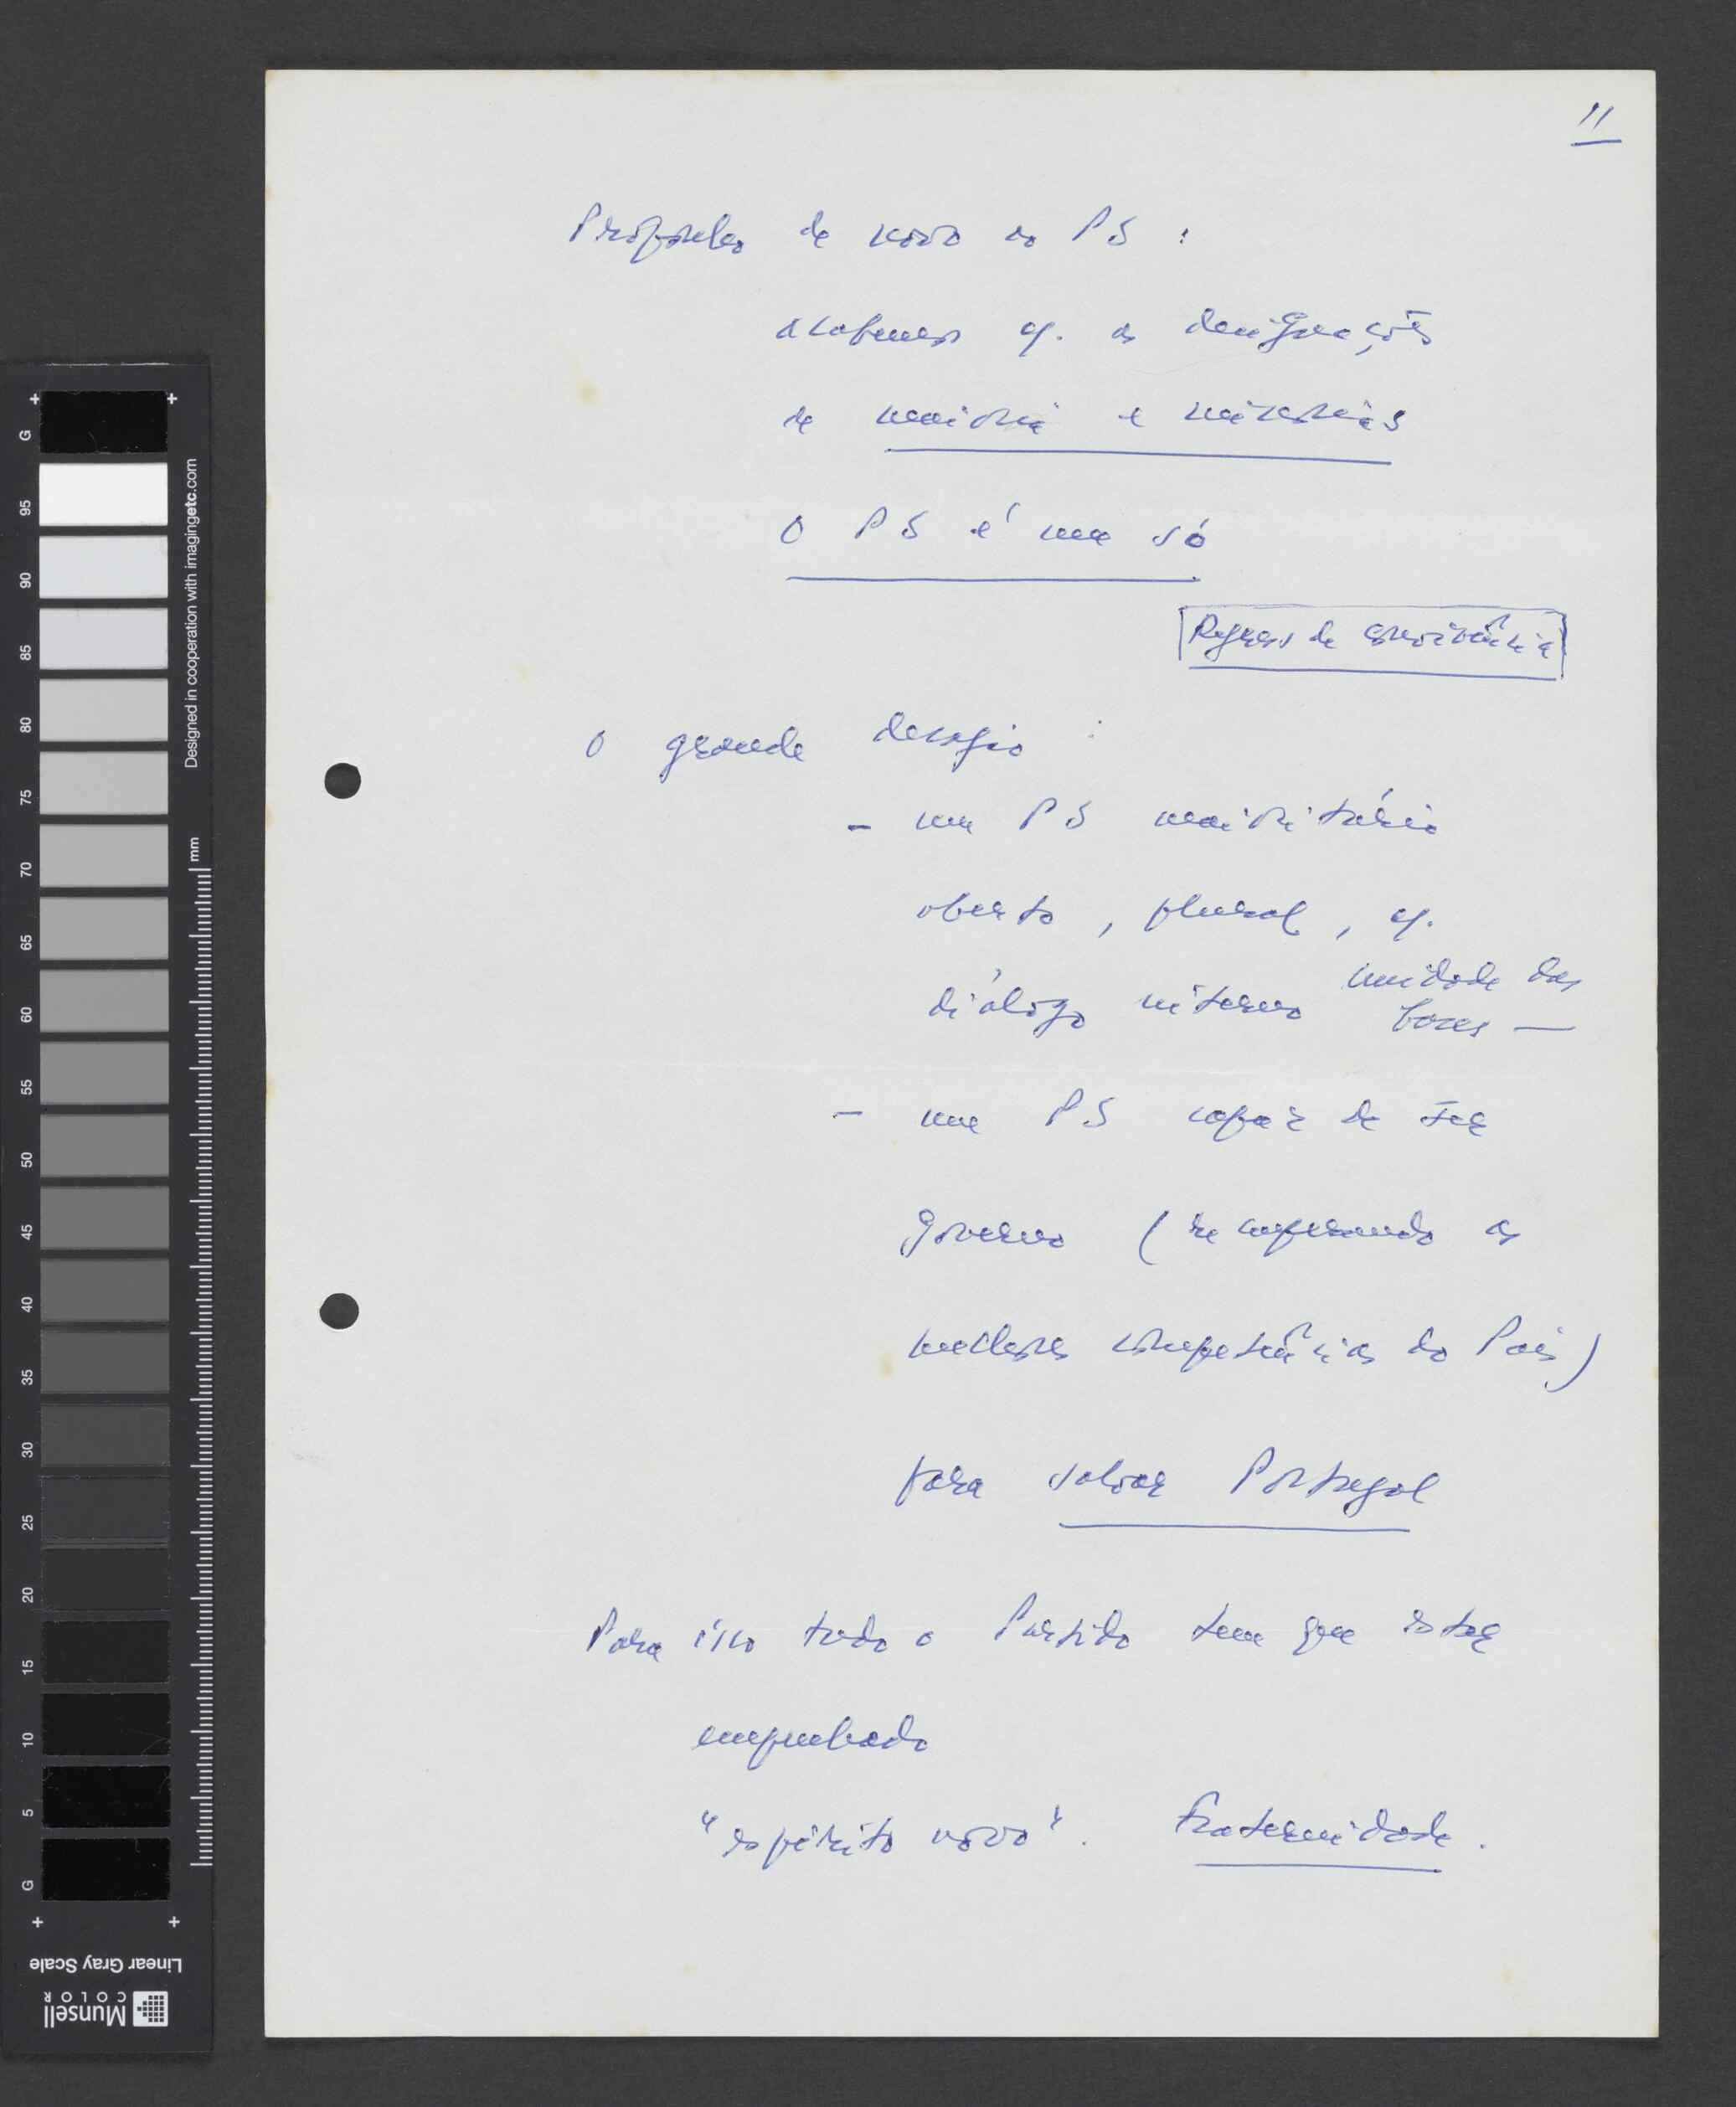 11
Proponho de novo ao PS :
acabemos c/. as designações
de maioria e minorias
O PS é um só
Regras de convivência
O grande desafio :
- um PS maioritário
aberto, plural, c/.
diálogo interno unidade das
bases —
- um PS capaz de ser
Governo (recuperando as
melhores competências do País)
para salvar Portugal
Para isso todo o Partido tem que estar
empenhado
"espírito novo". Fraternidade.
G
95
90
85
80
75
70
65
60
55
50
45
40
35
30
25
20
15
10
5
G
mm
Designed in cooperation with imagingetc.com
Linear Gray Scale
Munsell
COLOR